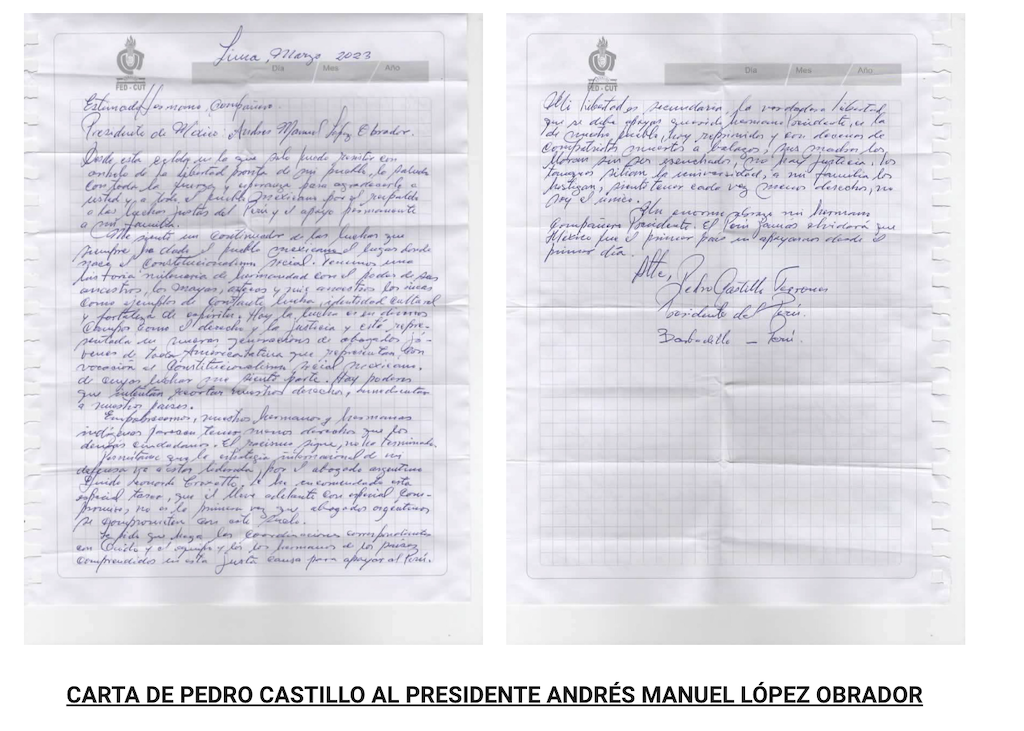 FED - CUT
Día / Mes / Año
Lima, Marzo 2023
Estimado Hermano, Compañero.
Presidente de México Andrés Manuel López Obrador.
Desde esta celda en la que solo puedo resistir con
anhelo de la libertad pronta de mi pueblo, lo saludo
con toda la fuerza y esperanza para agradecerle a
usted y a todo el pueblo mexicano por el respaldo
a las luchas justas del Perú y el apoyo permanente
a mi familia.
siento un continuador de las luchas que
siempre ha dado el pueblo mexicano el lugar donde
nace el Constitucionalismo social. Tenemos una
historia milenaria de hermandad con el poder de sus
ancestros, los mayas, aztecas y mis ancestros los incas
como ejemplos de constante lucha, identidad cultural
y fortaleza de espíritu. Hoy la lucha es en diversos
campos como el derecho y la justicia y está repre-
sentada en nuevas generaciones de abogados jó-
venes de toda América latina que representan con
vocación el Constitucionalismo social mexicano.
de cuyas luchas me siento parte. Hay poderes
que intentan recortar nuestros derechos,
a nuestros países.
Empobrecernos, nuestros hermanos y hermanas
indígenas parecen tener menos derechos que los
demás ciudadanos. El racismo sigue, no ha terminado.
que la estrategia internacional de mi
defensa va a estar liderada, por el abogado argentino
Guido Leonardo Croxatto, le he encomendado esta
especial tarea, que él lleva adelante con especial com-
promiso, no es la primera vez que abogados argentinos
se comprometen con este suelo.
Le pido que haga las coordinaciones correspondientes
con Guido y el equipo y los hermanos de los países
comprendidos en esta justa causa para apoyar al Perú.
FED - CUT
Día / Mes / Año
Mi libertad es secundaria, la verdadera libertad
que se debe apoyar querido hermano Presidente, es la
de nuestro pueblo, hoy reprimidos y con decenas de
compatriotas muertos a balazos, sus madres los
lloran sin ser escuchadas, no hay justicia, los
tanques sitian la universidad, a mi familia los
hostigan, siento tener cada vez menos derechos, no
soy el único.
Un enorme abrazo mi hermano
compañero Presidente. El Perú jamás olvidará que
México fue el primer país en apoyarnos desde el
primer día.
Atte,
Pedro Castillo Terrones
Presidente del Perú.
Barbadillo – Perú.
CARTA DE PEDRO CASTILLO AL PRESIDENTE ANDRÉS MANUEL LÓPEZ OBRADOR